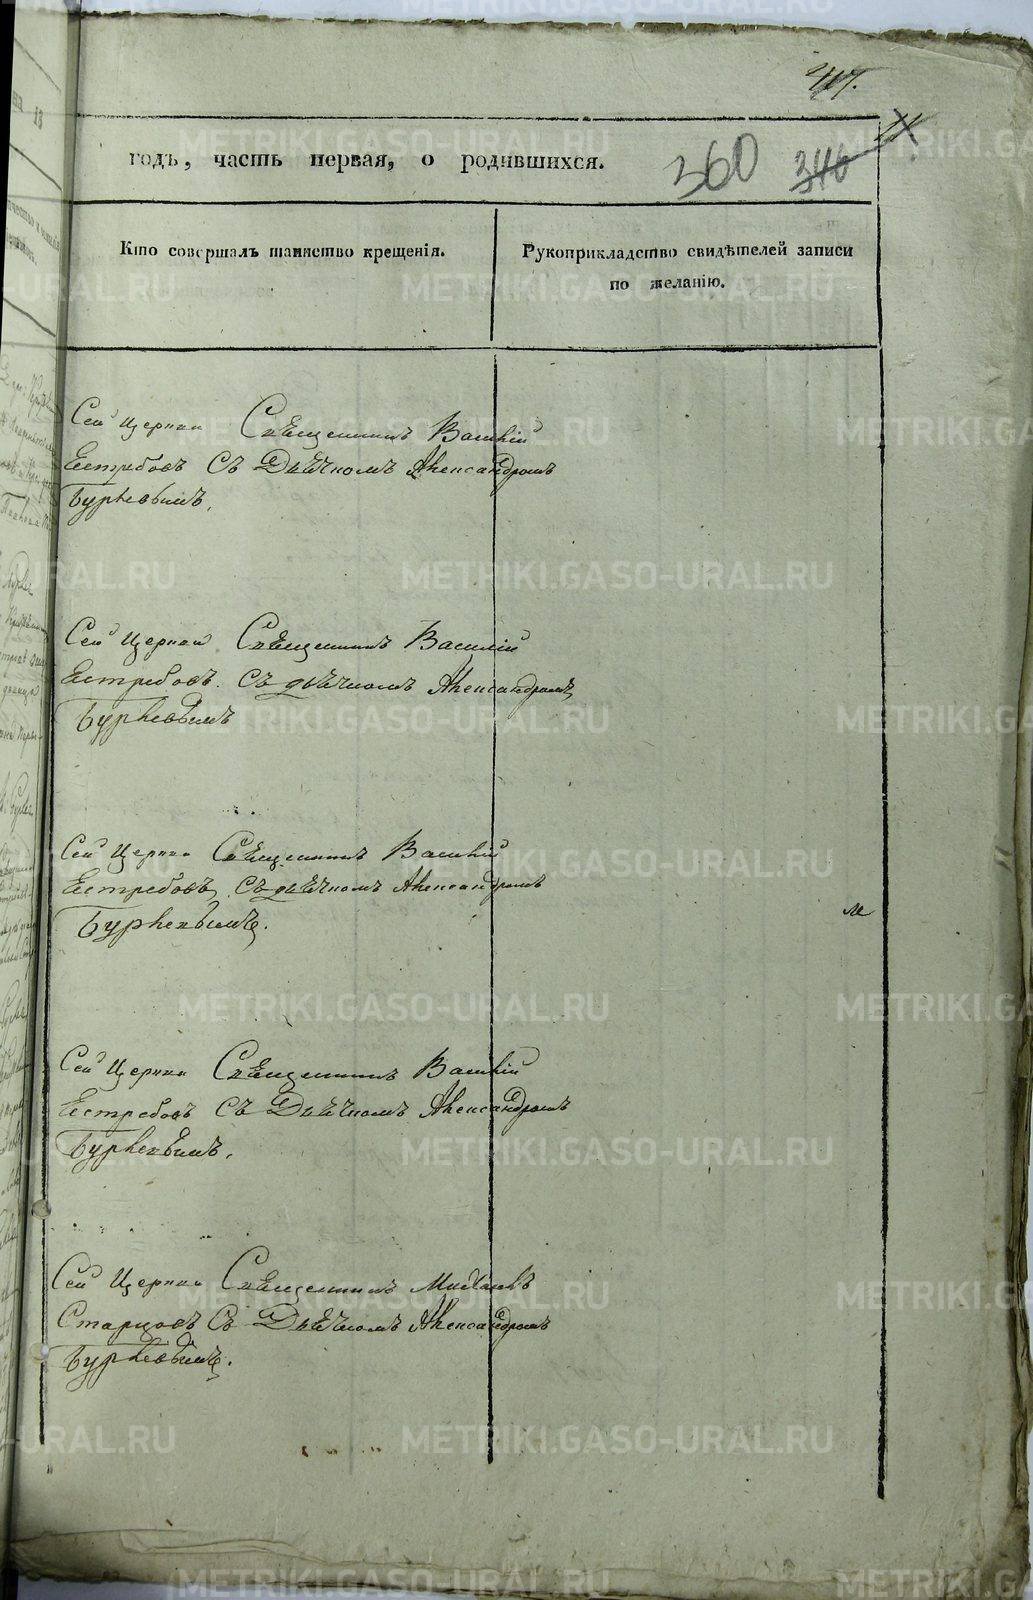 417.
годъ, часть первая, о родившихся.
360 346
Кто совершалъ таинство крещенія.
Рукоприкладство свидѣтелей записи
по желанію.
Сей Церкви Священникъ Василій
Ястребовъ съ Дьячкомъ Александромъ
Бурлевымъ.
Сей Церкви Священникъ Василій
Ястребовъ съ дьячкомъ Александромъ
Бурлевымъ
Сей Церкви Священникъ Василій
Ястребовъ съ дьячкомъ Александромъ
Бурлевымъ.
Сей Церкви Священникъ Василій
Ястребовъ съ Дьячкомъ Александромъ
Бурлевымъ.
Сей Церкви Священникъ Михаилъ
Старцовъ Съ Дьячкомъ Александромъ
Бурлевымъ.
METRIKI.GASO-URAL.RU